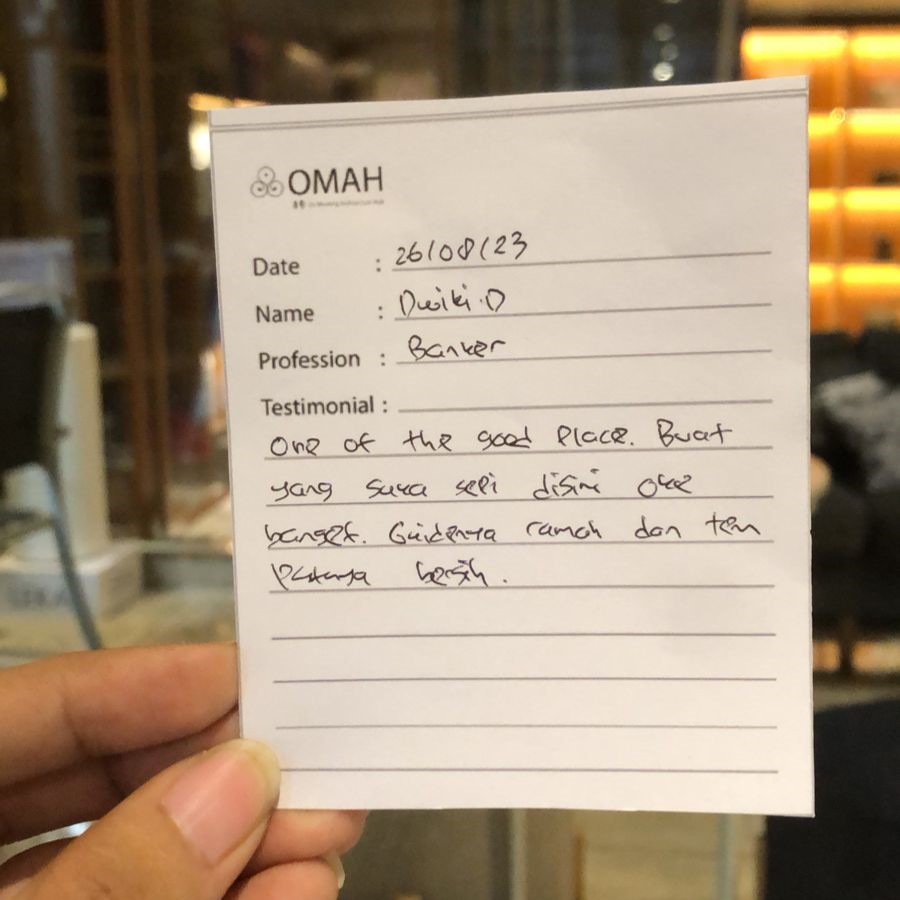 OMAH
Date : 26/08/23
Name : Dwiki.D
Profession : Banker
Testimonial :
One of the good place. Buat
yang suka sepi disini oke
banget. Guidenya ramah dan tem
patnya bersih.